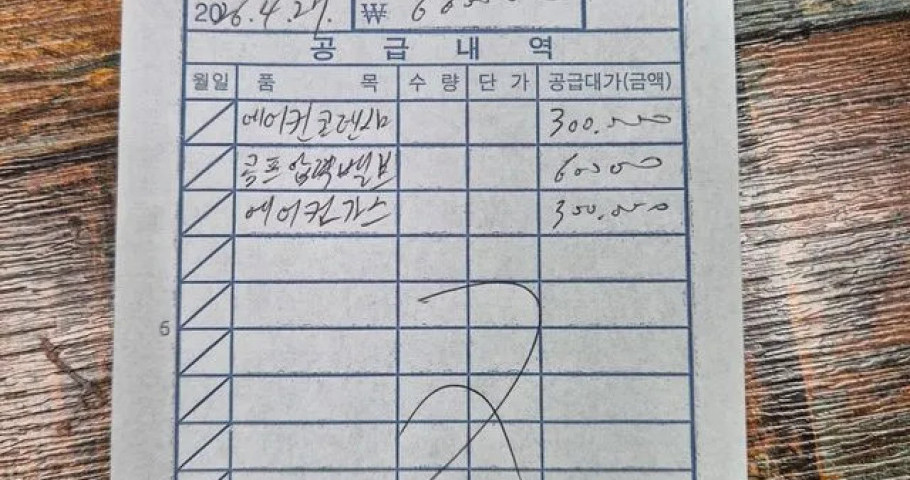 2026.4.27. ₩ 660000
공급내역
월일 품목 수량 단가 공급대가(금액)
에어컨콘덴샤 300.000
콤프압력밸브 60000
에어컨가스 300.000
5